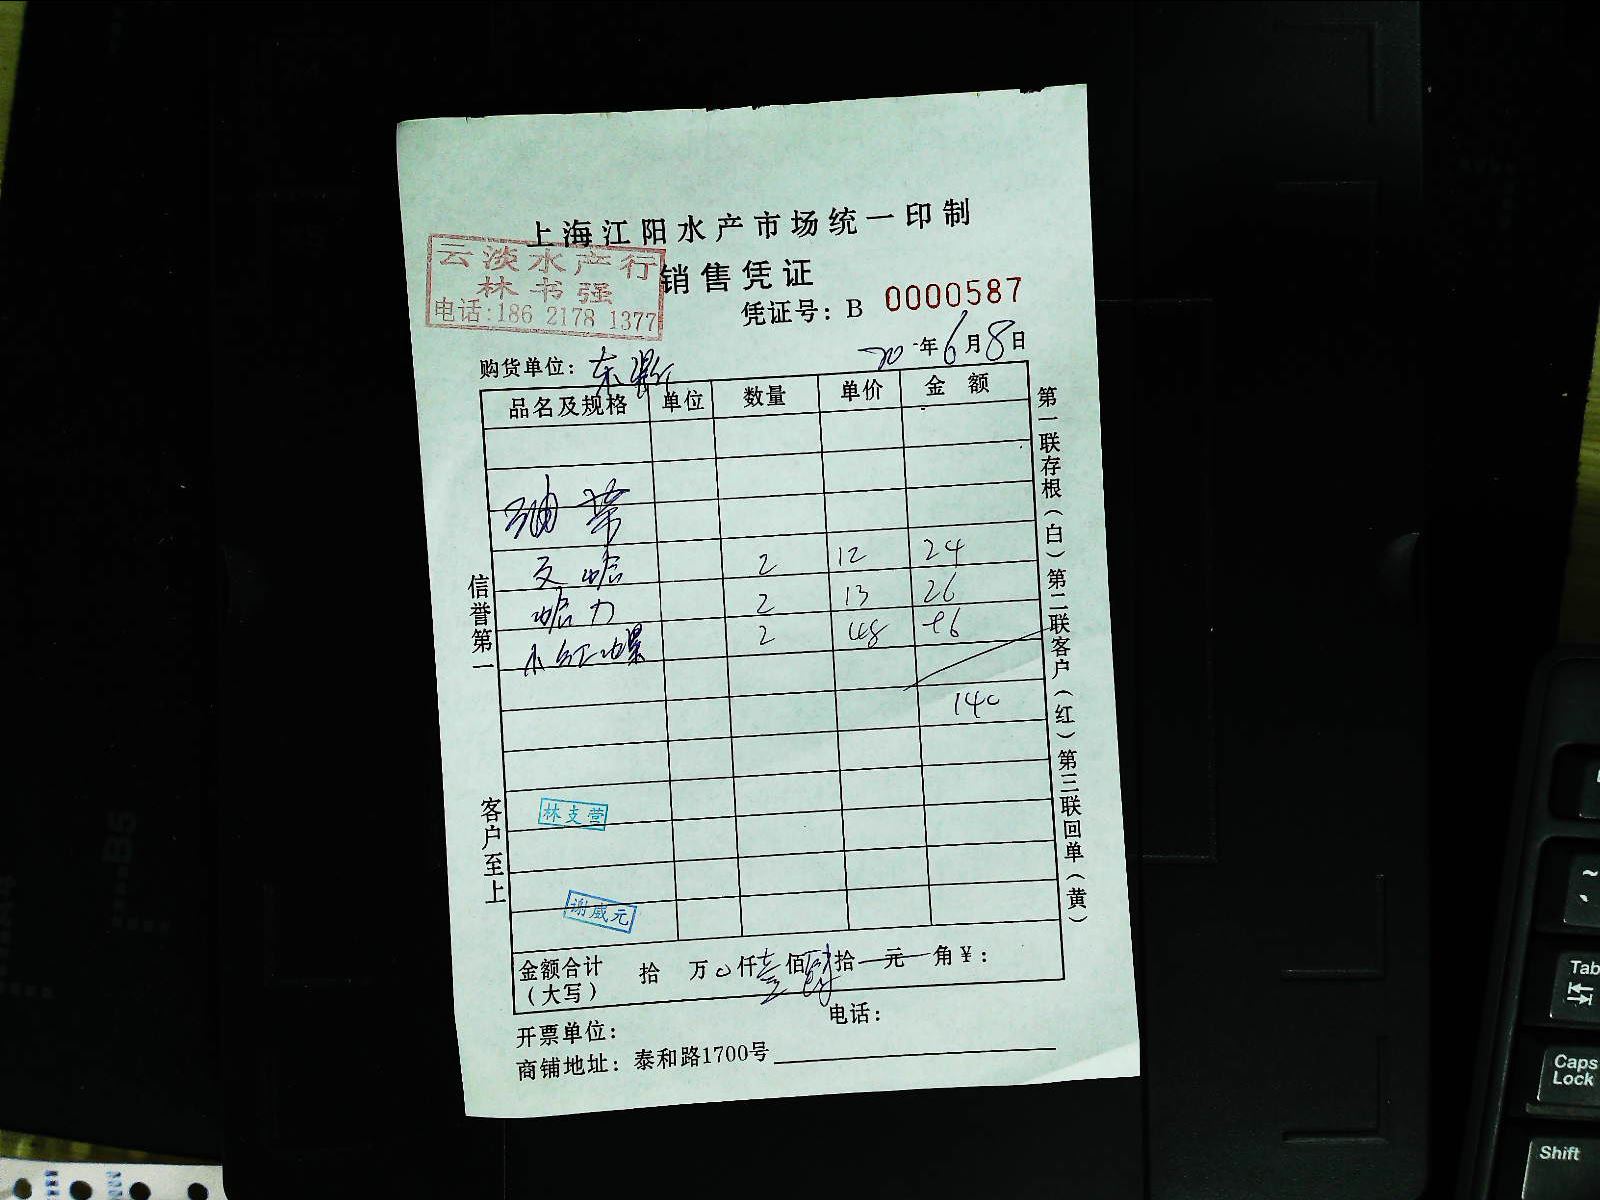 上海江阳水产市场统一印制
云淡水产行
林书强
电话:186 2178 1377
销售凭证
凭证号: B 0000587
购货单位: 东
20年6月8日
品名及规格 单位 数量 单价 金额
2 12 24
2 13 26
小红螺 2 48 96
140
林支营
谢威元
金额合计 拾 万0仟壹佰肆拾元角¥:
(大写)
开票单位: 电话:
商铺地址: 泰和路1700号
信誉第一
客户至上
第一联存根(白)第二联客户(红)第三联回单(黄)
B5
A4
~
Tab
Caps Lock
Shift